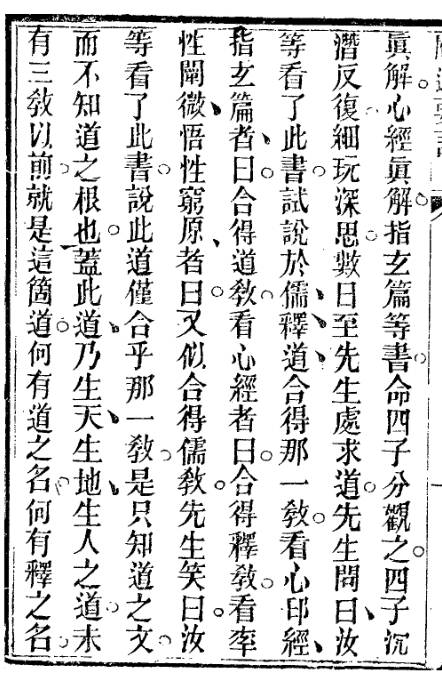 眞解心經眞解指玄篇等書命四子分觀之四子沉
潛反復細玩深思數日至先生處求道先生問曰汝
等看了此書試說於儒釋道合得那一敎看心印經
指玄篇者曰合得道敎看心經者曰合得釋敎看率
性闡微悟性窮原者曰又似合得儒敎先生笑曰汝
等看了此書說此道僅合乎那一敎是只知道之文
而不知道之根也蓋此道乃生天生地生人之道未
有三敎以前就是這箇道何有道之名何有釋之名